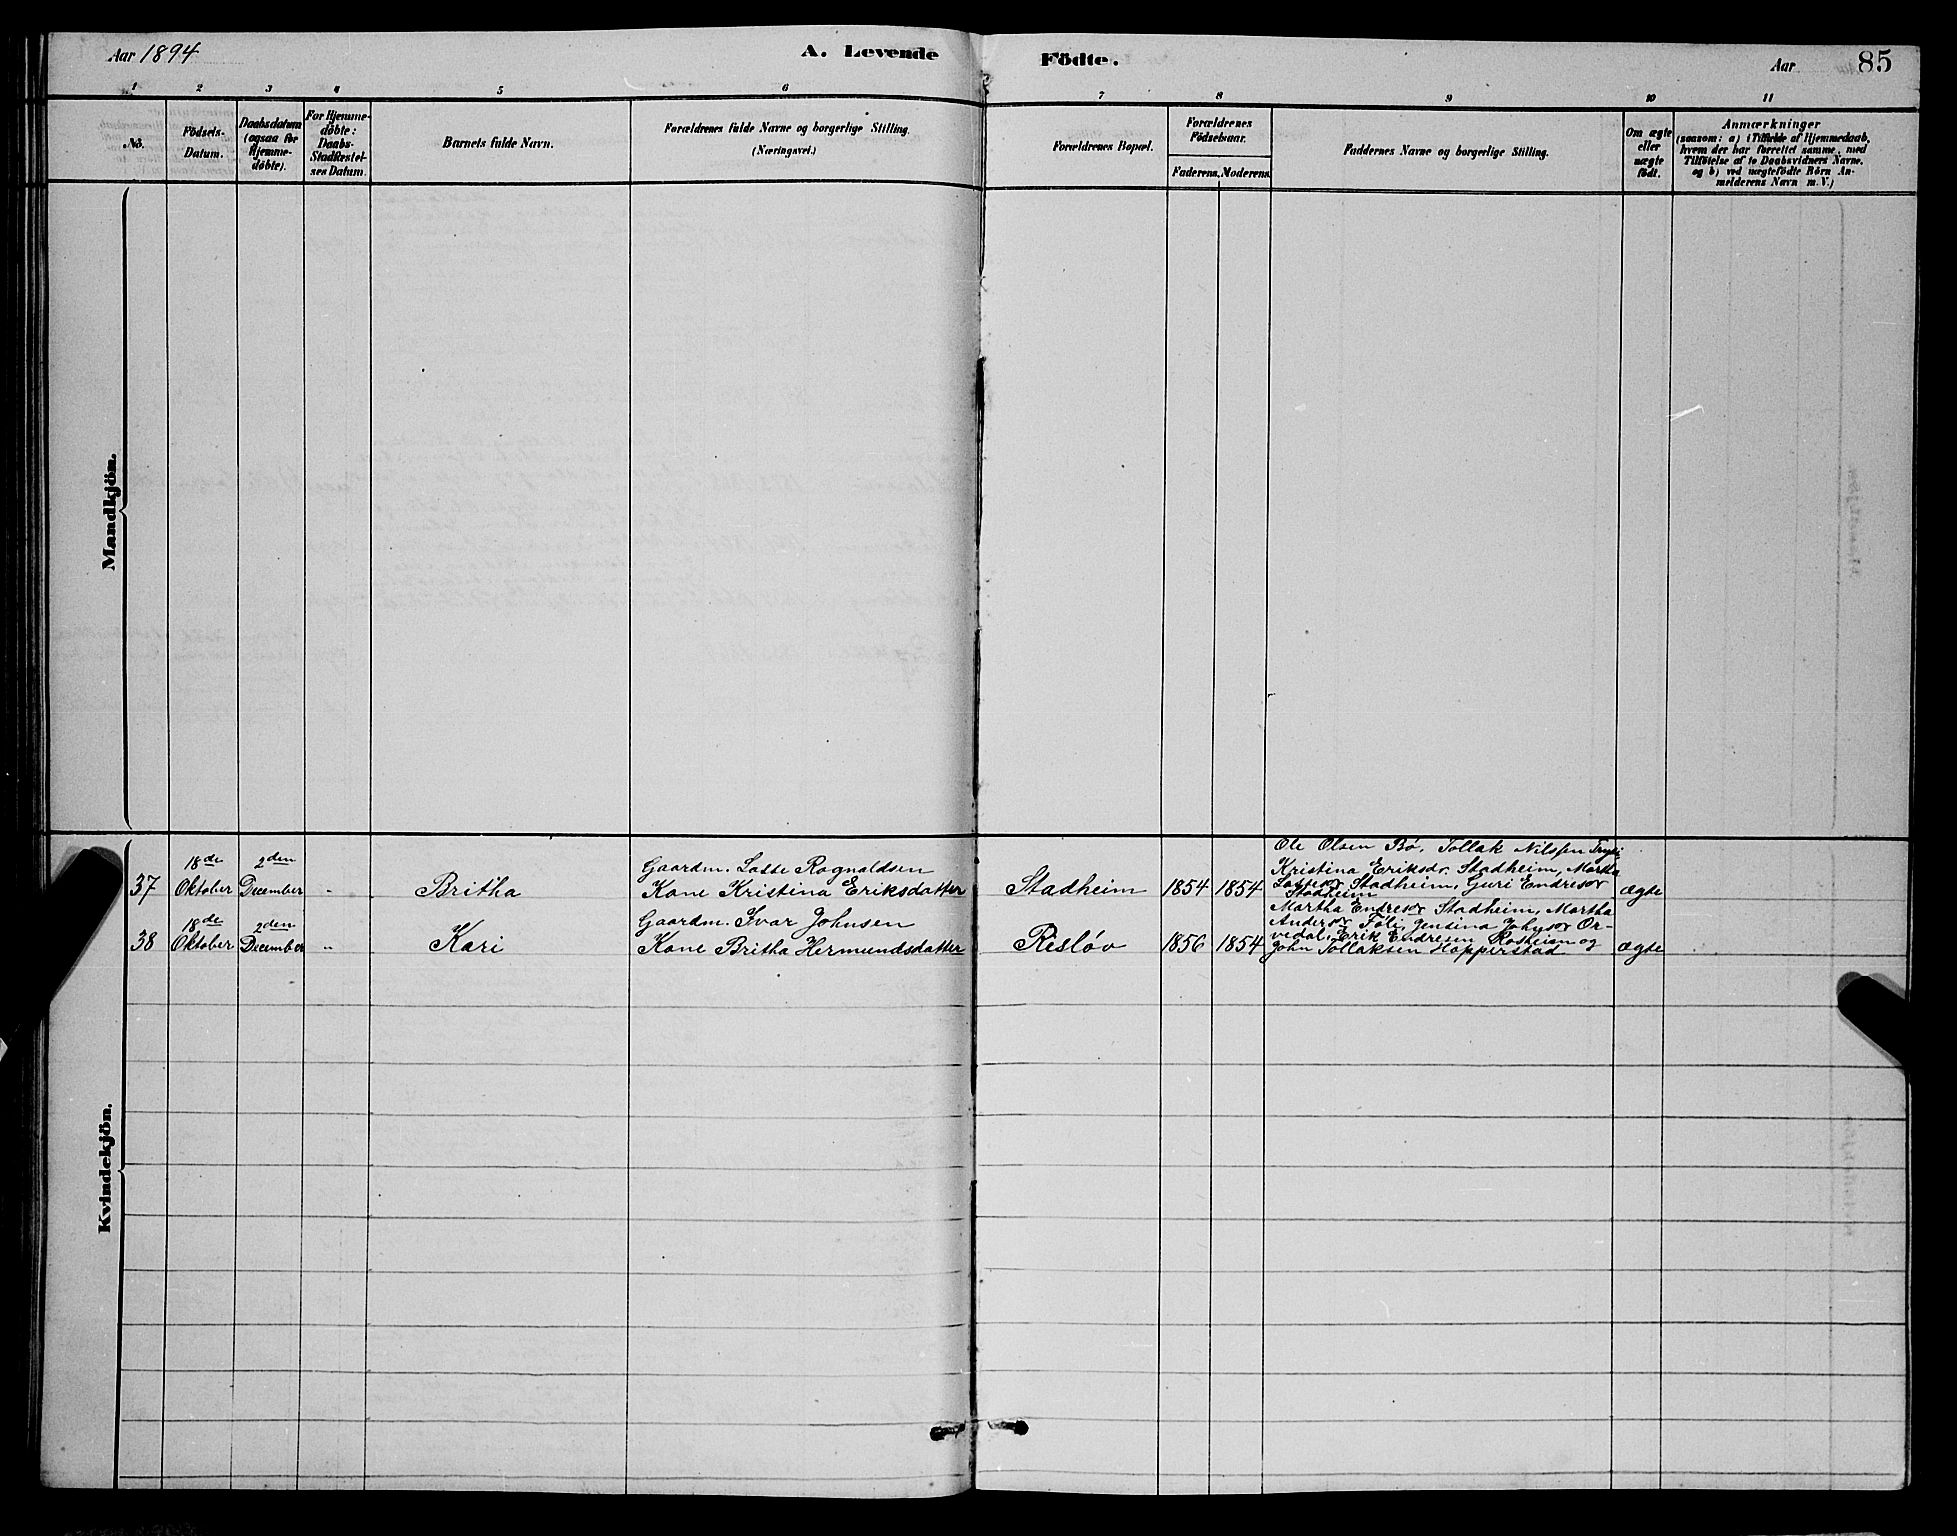 Aar 1894
A. Levende Födte.
Aar
85
1 2 3 4 5 6 7 8 9 10 11
No.
Födsels-
Datum.
Daabsdatum
(ogsaa for
Hjemme-
döbte).
For Hjemme-
döbte:
Daabs-
Stadfæstel-
ses Datum.
Barnets fulde Navn.
Forældrenes fulde Navne og borgerlige Stilling.
(Næringsvei.)
Forældrenes Bopæl.
Forældrenes
Födselsaar.
Faderens. Moderens.
Faddernes Navne og borgerlige Stilling.
Om ægte
eller
uægte
födt.
Anmærkninger
(saasom: a) i Tilfælde af Hjemmedaab,
hvem der har forrettet samme, med
Tilföielse af to Daabsvidners Navne.
og b) ved uægtefödte Börn An-
melderens Navn m. V.)
Mandkjön.
Kvindekjön.
37
18de
Oktober
2den
December
"
Britha
Gaardm. Lasse Ragnaldsen
Kone Kristina Eriksdatter
Stadheim
1854
1854
Ole Olsen Bø, Tollak Nilssen
Kristina Eriksdr. Stadheim, Martha
Lassesdr Stadheim, Guri Endresdr
Stadheim
ægte
38
18de
Oktober
2den
December
"
Kari
Gaardm. Ivar Johnsen
Kone Britha Hermundsdatter
Risløv
1856
1854
Martha Endresdr Stadheim, Martha
Andersdr Føli, Jensina Johnsdr Or-
vedal, Erik Endresen Rosheim og
John Tollaksen Hopperstad
ægte